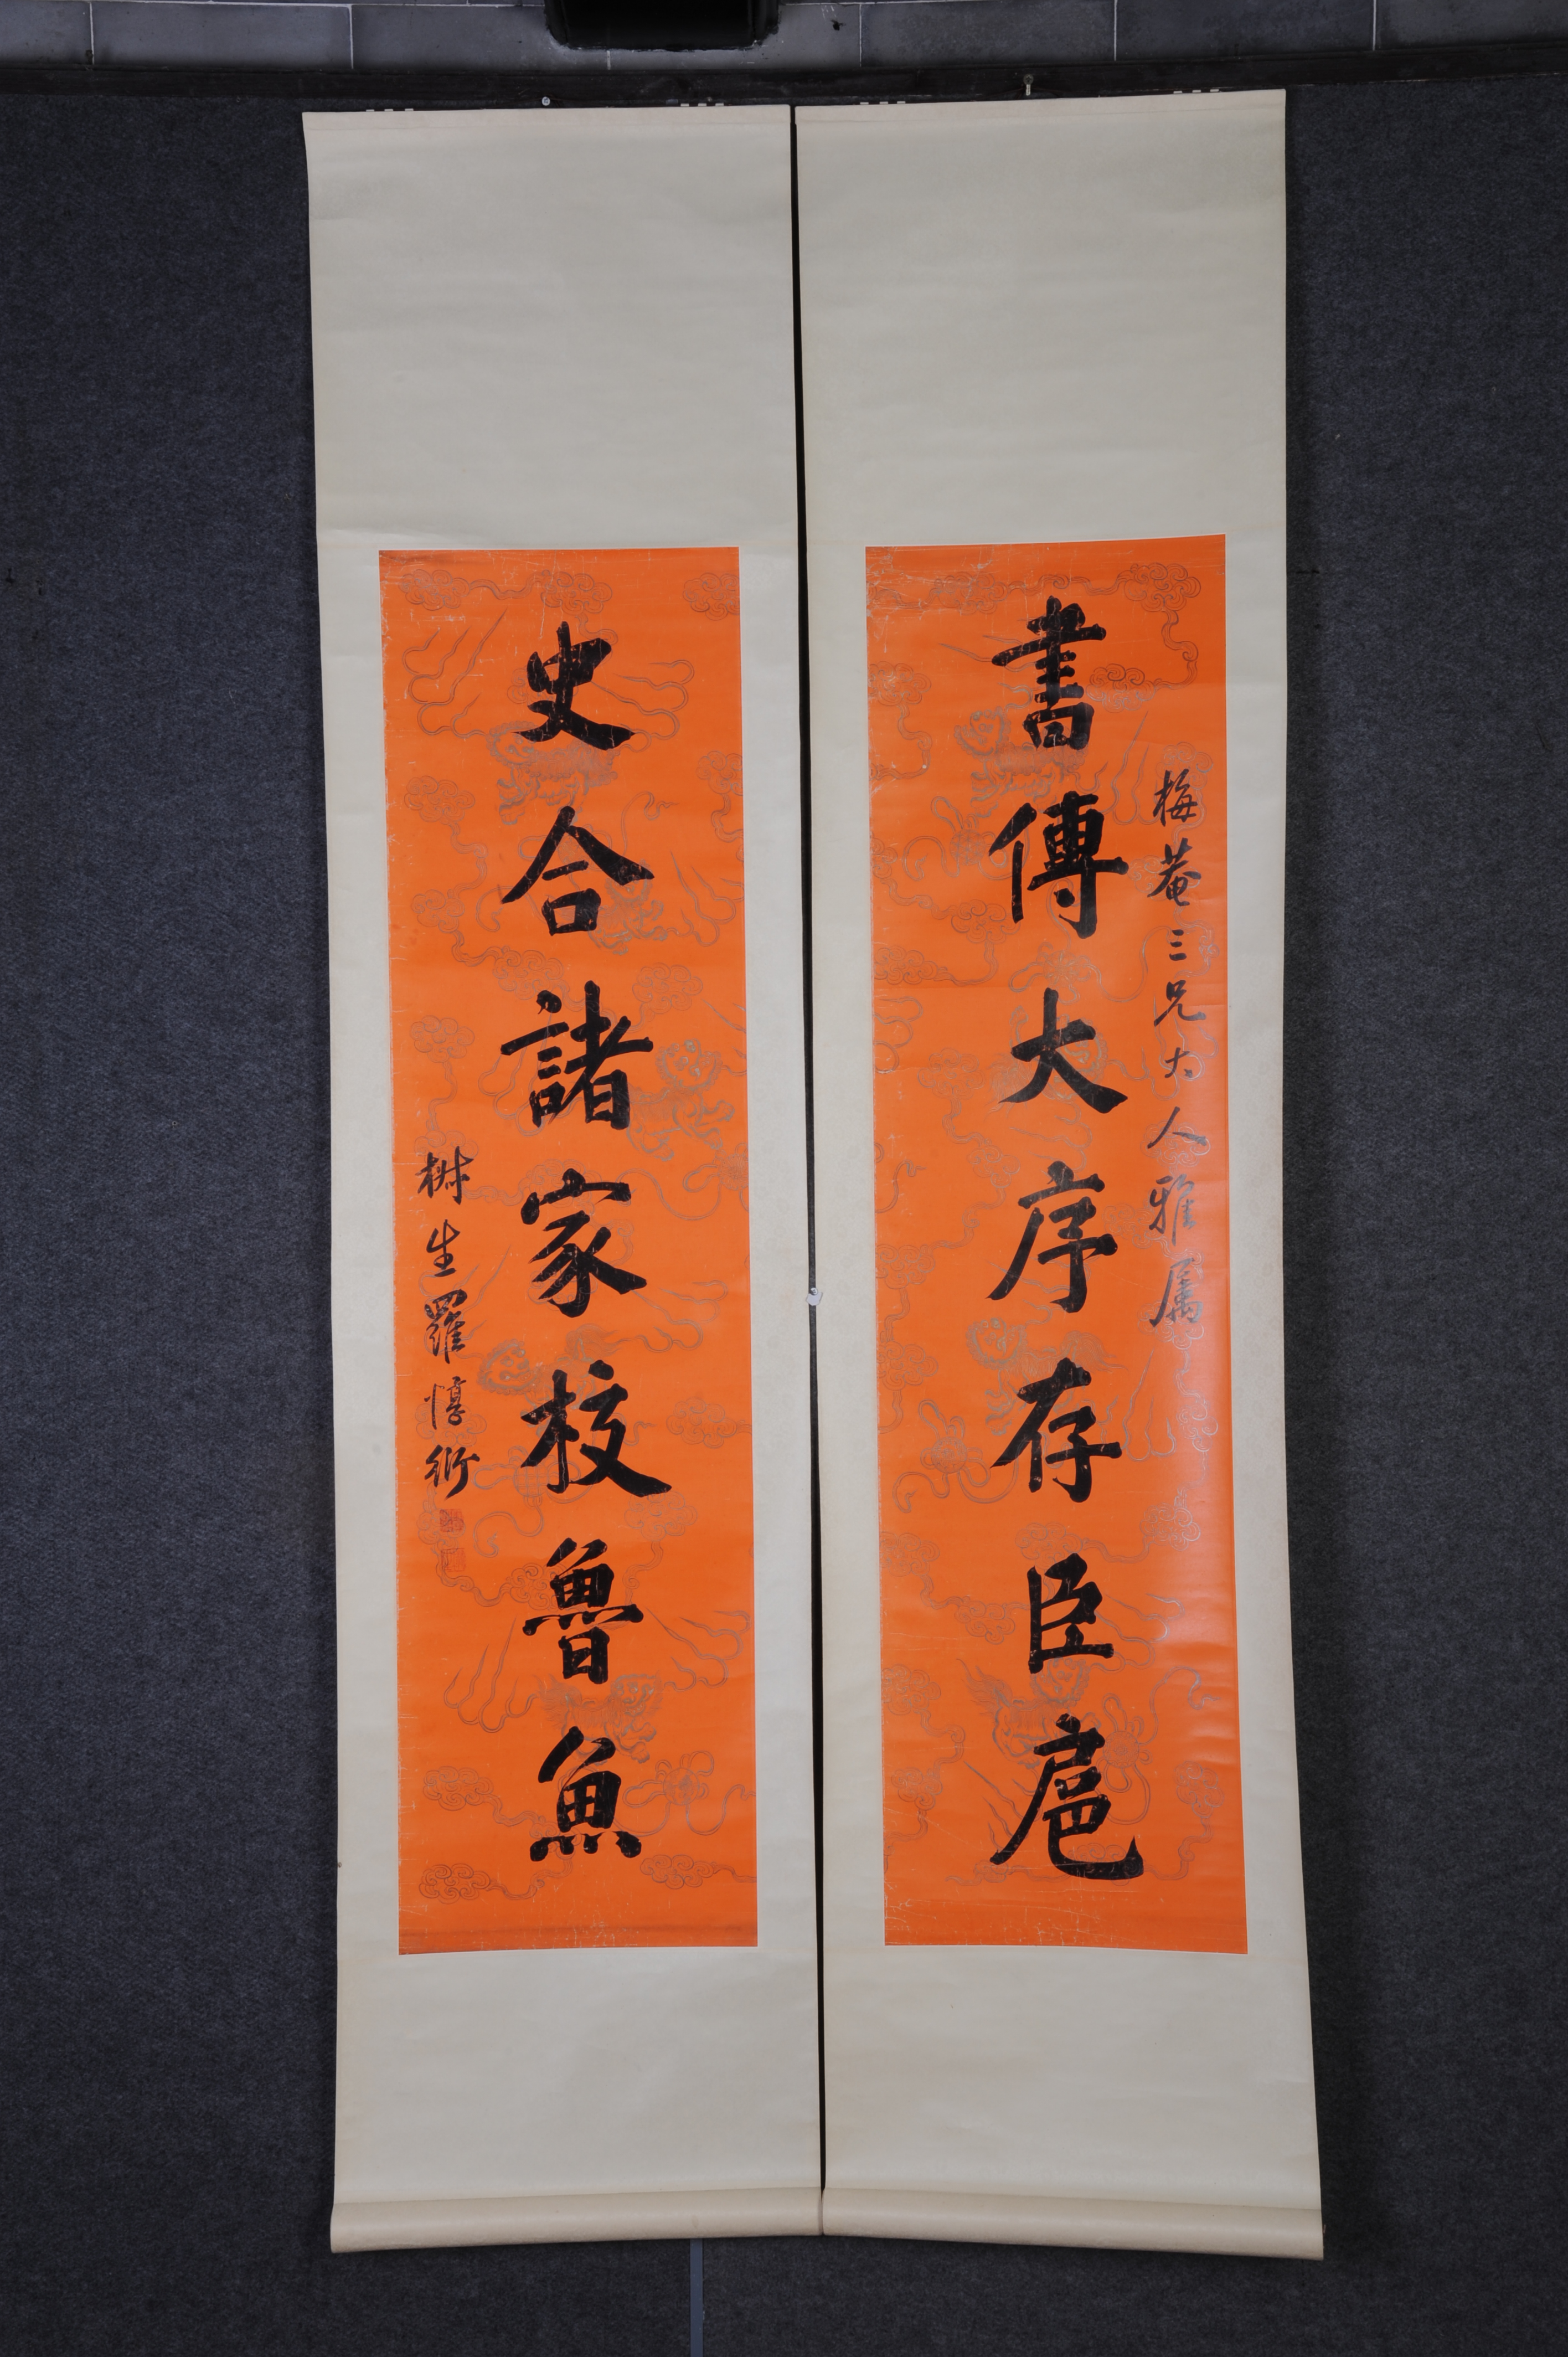 書傳大序存臣扈
梅菴三兄大人雅属
史合諸家校魯魚
生羅惇㣧